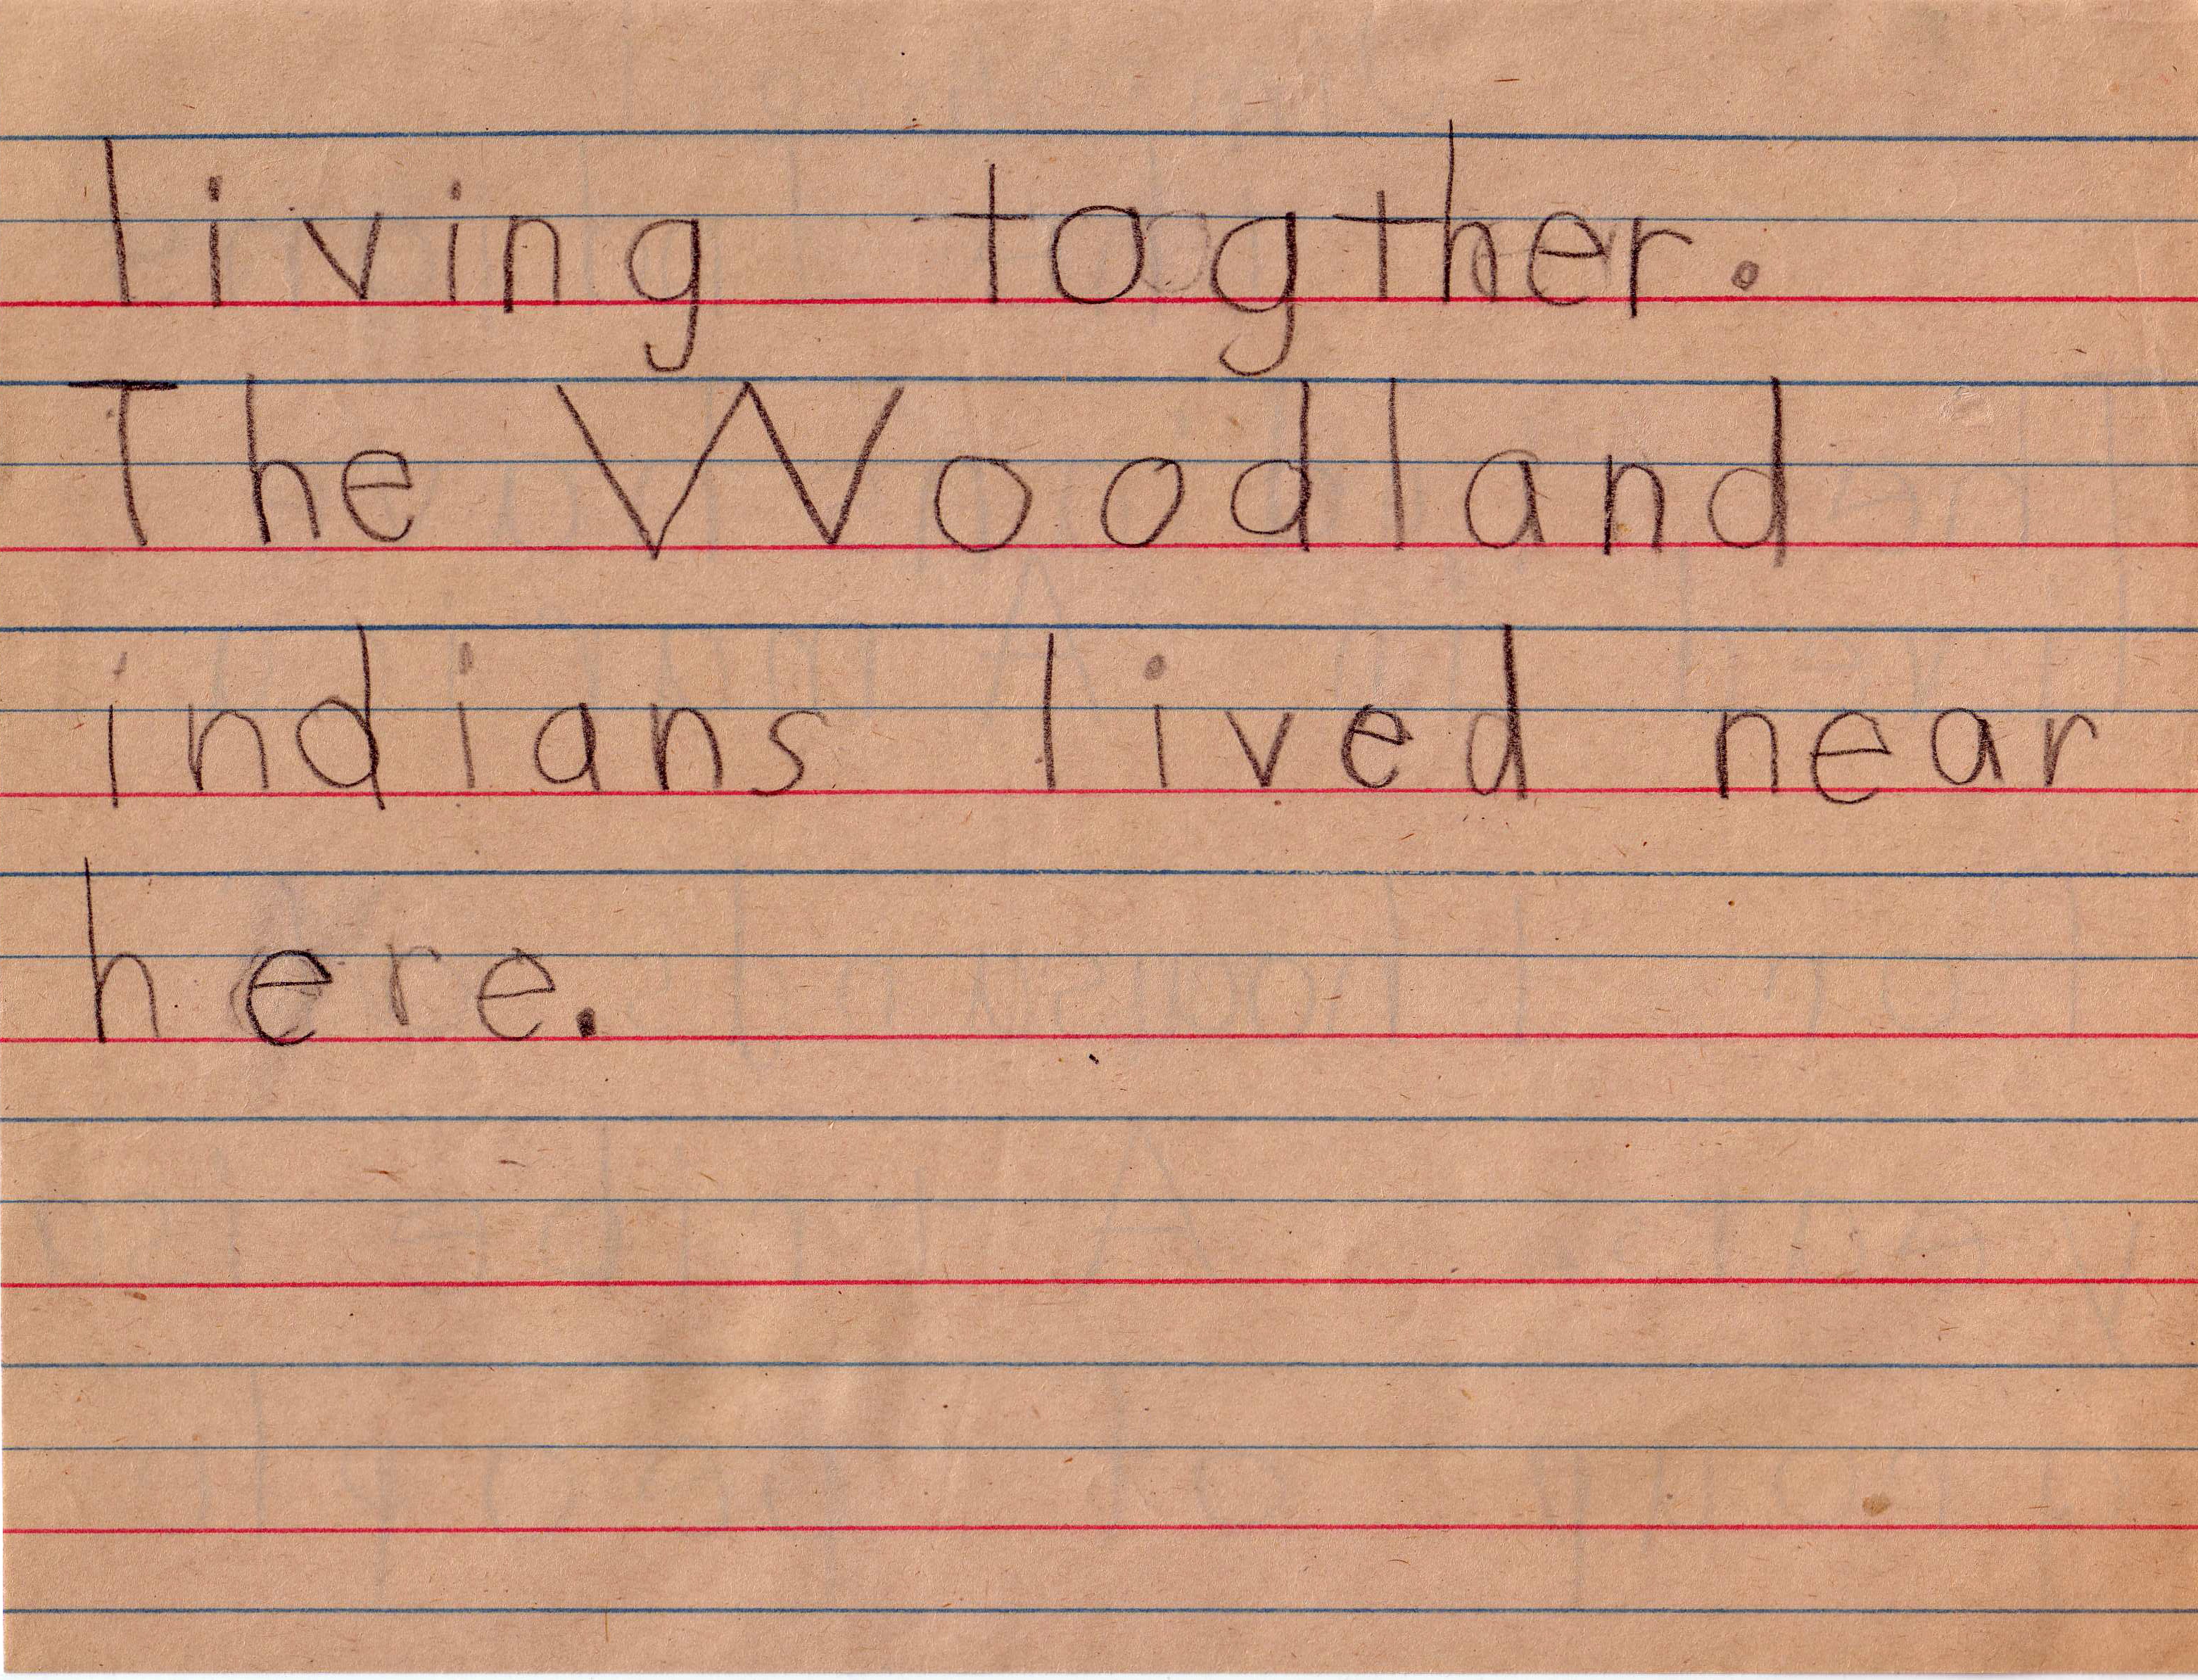 living togther.
The Woodland
indians lived near
here.